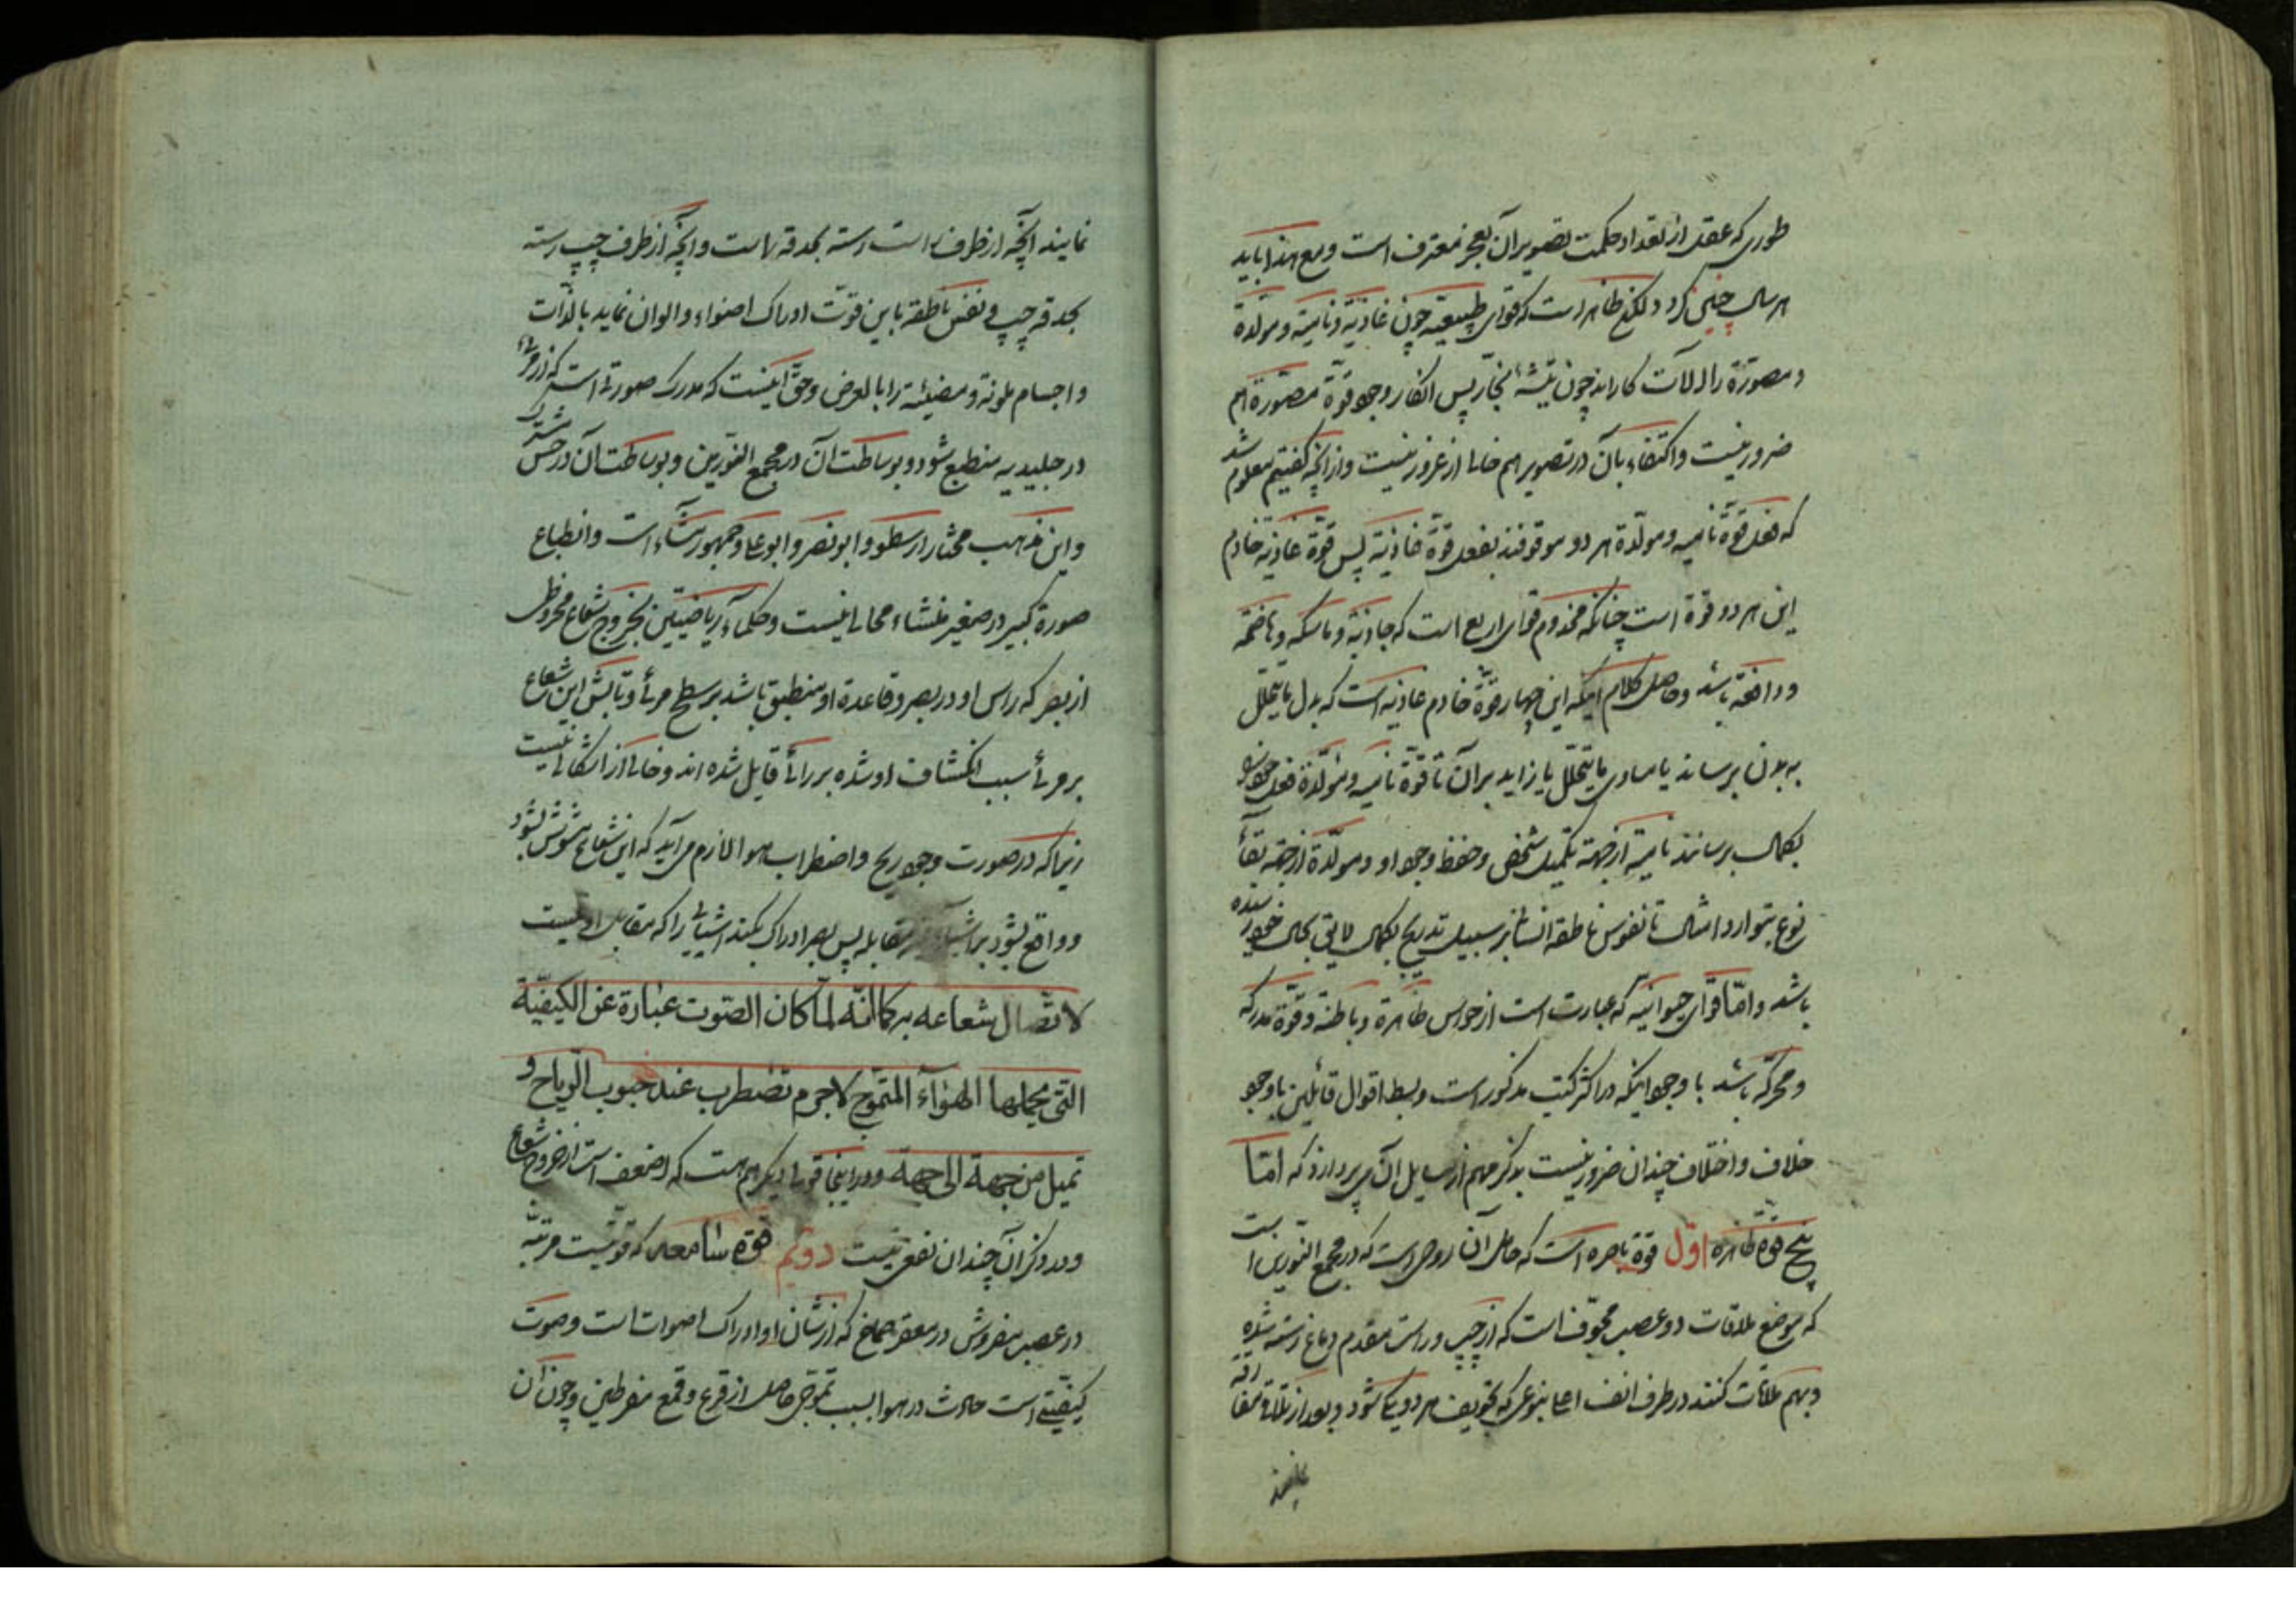 طوری که عقل از تعداد حکمت تصویر آن بعجز معترف است ومع هذا باید
و لکن ظاهر است که قوای طبیعیه چون غاذیة ونامیة ومولدة
ومصورة را آلات کار اند چون تیشهٔ نجار پس انکار وجود قوة مصورة هم
ضرور نیست واکتفاء بآن در تصویر هم خالی از غرور نیست واز آنچه گفتیم معلوم شد
که فعل قوة نامیه ومولدة هر دو موقوفند بفعل قوة غاذیة پس قوة غاذیه خادم
این هر دو قوة است چنانکه مخدوم قوای اربع است که جاذبة وماسکه وهاضمه
ودافعة باشد وحاصل کلام اینکه این چهار قوة خادم غاذیه است که بدل ما یتحلل
به بدن برساند یا مساوی ما یتحلل یا زاید بر آن تا قوة نامیه ومولدة فعل خود را
بکمال برسانند نامیة از جهة تکمیل شخص وحفظ وجود او ومولدة از جهة بقاء
نوع بتوارد امثال تا نفوس ناطقه انسانی بر سبیل تدریج بکمال لایق بحال خود رسیده
باشد وامّا قوای حیوانیه که عبارت است از حواس ظاهرة وباطنة وقوة مدرکه
ومحرکه باشد با وجود اینکه در اکثر کتب مذکور است وبسط اقوال قائلین با وجود
خلاف واختلاف چندان ضرور نیست بذکر مهم از مسایل آن می پردازد که امّا
پنج قوة ظاهره اوّل قوة باصره است که حامل آن روحی است که در مجمع النورین است
که موضع ملاقات دو عصب مجوف است که از چپ وراست مقدم دماغ رسته شده
وبهم ملاقات کنند در طرف انف اعلی بنوعی که تجویف هر دو یکی شود وبعد از تلاقی مفارقه
نمایند
نمایند آنچه از طرف راست رسته بحدقه راست وآنچه از طرف چپ رسته
بحدقه چپ ونفس ناطقه باین قوّت ادراک اضواء والوان نماید بالذّات
واجسام ملونة ومضیئة را بالعرض وحق اینست که مدرک صورتی است که از مرئی
در جلیدیه منطبع شود وبوساطت آن در مجمع النورین وبوساطت آن در حس مشترک
واین مذهب مختار ارسطو وابو نصر وابو علی وجمهور مشاء است وانطباع
صورة کبیر در صغیر منشاء محالی نیست وحکماء ریاضیین بخروج شعاع مخروطی
از بصر که راس او در بصر وقاعدة او منطبق باشد بر سطح مرئی وتابش این شعاع
بر مرئی سبب انکشاف او شده بر رائی قایل شده اند وخالی از اشکالی نیست
زیرا که در صورت وجود ریح واضطراب هوا لازم می آید که این شعاع مشوش بشود
وواقع بشود بر اشیاء غیر مقابله پس بصر ادراک بکند اشیائی را که مقابل او نیست
لاتّصال شعاعه به کما انّه لمّا کان الصّوت عبارة عن الکیفیّة
التی یحملها الهوآء المتموّج لاجرم تضطرب عند هبوب الریاح و
تمیل من جهة الی جهة ودر اینجا قولی دیگر هم هست که اضعف است از خروج شعاع
ودر ذکر آن چندان نفعی نیست دویّم قوة سامعه که قوتیست مرتبه
در عصب مفروش در مقعر صماخ که از شأن او ادراک اصوات است وصوت
کیفیّتی است حادث در هوا بسبب تموجی حاصل از قرع وقمع مفرطین وچون آن